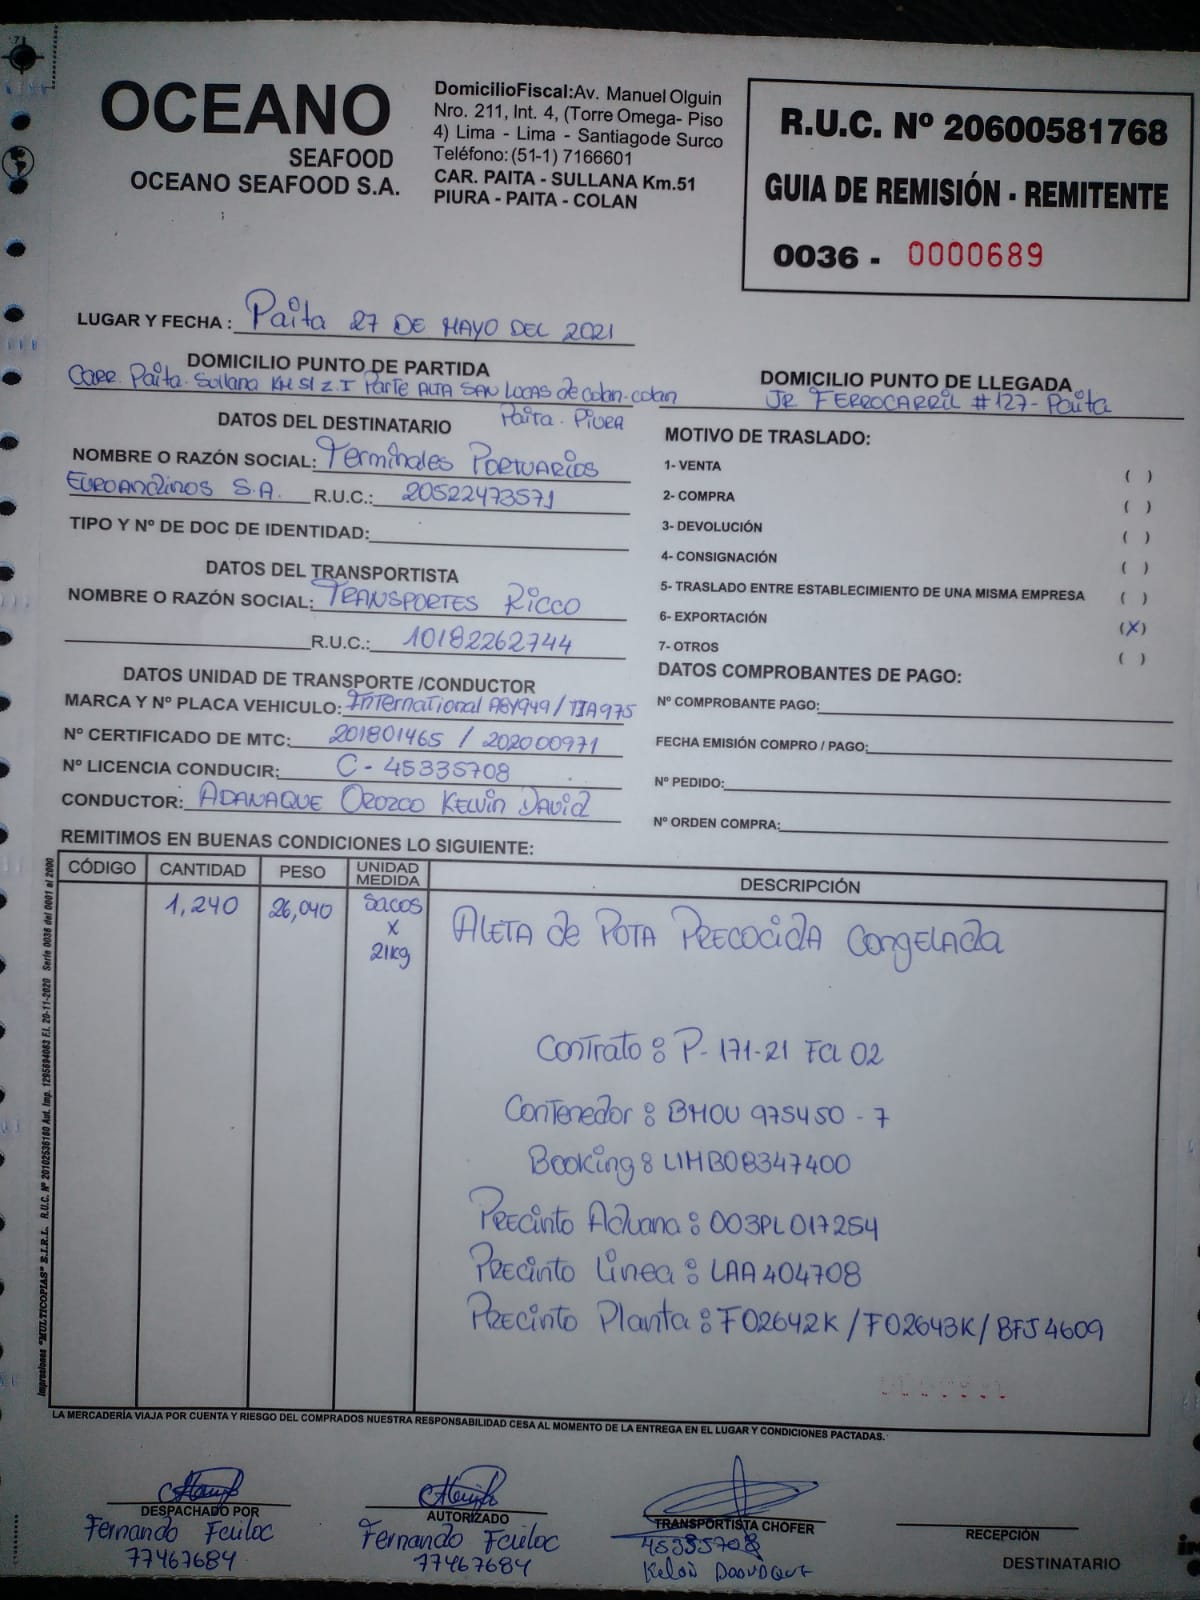 OCEANO
SEAFOOD
OCEANO SEAFOOD S.A.
DomicilioFiscal:Av. Manuel Olguin
Nro. 211, Int. 4, (Torre Omega- Piso
4) Lima - Lima - Santiagode Surco
Teléfono: (51-1) 7166601
CAR. PAITA - SULLANA Km.51
PIURA - PAITA - COLAN
R.U.C. Nº 20600581768
GUIA DE REMISIÓN - REMITENTE
0036 - 0000689
LUGAR Y FECHA : Paita 27 DE MAYO DEL 2021
DOMICILIO PUNTO DE PARTIDA
Carr. Paita - Sullana KM 51 Z.I Parte ALTA SAN LUCAS de colan-colan
Paita - Piura
DOMICILIO PUNTO DE LLEGADA
JR FERROCARRIL #127- Paita
DATOS DEL DESTINATARIO
NOMBRE O RAZÓN SOCIAL: Terminales Portuarios
Euroandinos S.A. R.U.C.: 20522473571
TIPO Y Nº DE DOC DE IDENTIDAD:
DATOS DEL TRANSPORTISTA
NOMBRE O RAZÓN SOCIAL: TRANSPORTES RICCO
R.U.C.: 10182262744
DATOS UNIDAD DE TRANSPORTE /CONDUCTOR
MARCA Y Nº PLACA VEHICULO: International
Nº CERTIFICADO DE MTC: 201801465 / 202000971
Nº LICENCIA CONDUCIR: C - 45335708
CONDUCTOR: ADANAQUE OROZCO KELVIN DAVID
MOTIVO DE TRASLADO:
1- VENTA ( )
2- COMPRA ( )
3- DEVOLUCIÓN ( )
4- CONSIGNACIÓN ( )
5- TRASLADO ENTRE ESTABLECIMIENTO DE UNA MISMA EMPRESA ( )
6- EXPORTACIÓN (X)
7- OTROS ( )
DATOS COMPROBANTES DE PAGO:
Nº COMPROBANTE PAGO:
FECHA EMISIÓN COMPRO / PAGO:
Nº PEDIDO:
Nº ORDEN COMPRA:
REMITIMOS EN BUENAS CONDICIONES LO SIGUIENTE:
CÓDIGO CANTIDAD PESO UNIDAD MEDIDA DESCRIPCIÓN
1,240 26,040 Sacos x 21kg ALETA de POTA PRECOCIDA CONGELADA
Contrato : P- 171-21 FCL 02
Contenedor : BMOU 975450 - 7
Booking : LIMB08347400
Precinto Aduana : 003PL017254
Precinto Linea : LAA404708
Precinto Planta : F02642K / F02643K / BFJ4609
LA MERCADERÍA VIAJA POR CUENTA Y RIESGO DEL COMPRADOS NUESTRA RESPONSABILIDAD CESA AL MOMENTO DE LA ENTREGA EN EL LUGAR Y CONDICIONES PACTADAS.
Impresiones "MULTICOPIAS" E.I.R.L. R.U.C. Nº 20102536180 Aut. Imp. 1295894083 F.I. 20-11-2020 Serie 0036 del 0001 al 2000
DESPACHADO POR
Fernando
77467684
AUTORIZADO
Fernando
77467684
TRANSPORTISTA CHOFER
RECEPCIÓN
DESTINATARIO